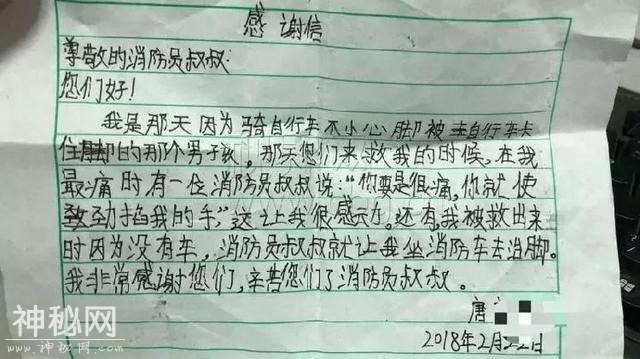 感谢信
尊敬的消防员叔叔:
您们好!
我是那天因为骑自行车不小心脚被自行车卡
住脚的那个男子孩。那天您们来救我的时候,在我
最痛时有一位消防员叔叔说:“你要是很痛,你就使
致劲掐我的手,”这让我很感动。还有,我被救出来
时因为没有车,消防员叔叔就让我坐消防车去治脚。
我非常感谢您们,辛苦您们了消防员叔叔。
唐
2018年2月22日
神秘网
WWW.神秘网.COM